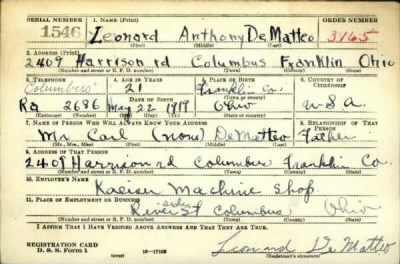 SERIAL NUMBER 1. NAME (Print) ORDER NUMBER
1546 Leonard Anthony DeMatteo 3165
(First) (Middle) (Last)
2. ADDRESS (Print)
2409 Harrison rd Columbus Franklin Ohio
(Number and street or R. F. D. number) (Town) (County) (State)
3. TELEPHONE 4. AGE IN YEARS 5. PLACE OF BIRTH 6. COUNTRY OF CITIZENSHIP
Columbus 21 Franklin Co.
DATE OF BIRTH
Ra 2686 May 22 1919 Ohio U.S.A.
(Exchange) (Number) (Mo.) (Day) (Yr.) (State or country)
7. NAME OF PERSON WHO WILL ALWAYS KNOW YOUR ADDRESS 8. RELATIONSHIP OF THAT PERSON
Mr. Carl (none) DeMatteo Father
(Mr., Mrs., Miss) (First) (Middle) (Last)
9. ADDRESS OF THAT PERSON
2409 Harrison rd Columbus Franklin Co.
(Number and street or R. F. D. number) (Town) (County) (State)
10. EMPLOYER'S NAME
Kaeiser Machine Shop
11. PLACE OF EMPLOYMENT OR BUSINESS
River St Columbus Ohio
(Number and street or R. F. D. number) (Town) (County) (State)
I AFFIRM THAT I HAVE VERIFIED ABOVE ANSWERS AND THAT THEY ARE TRUE.
REGISTRATION CARD
D. S. S. Form 1 (over) Leonard DeMatteo
(Registrant's signature)